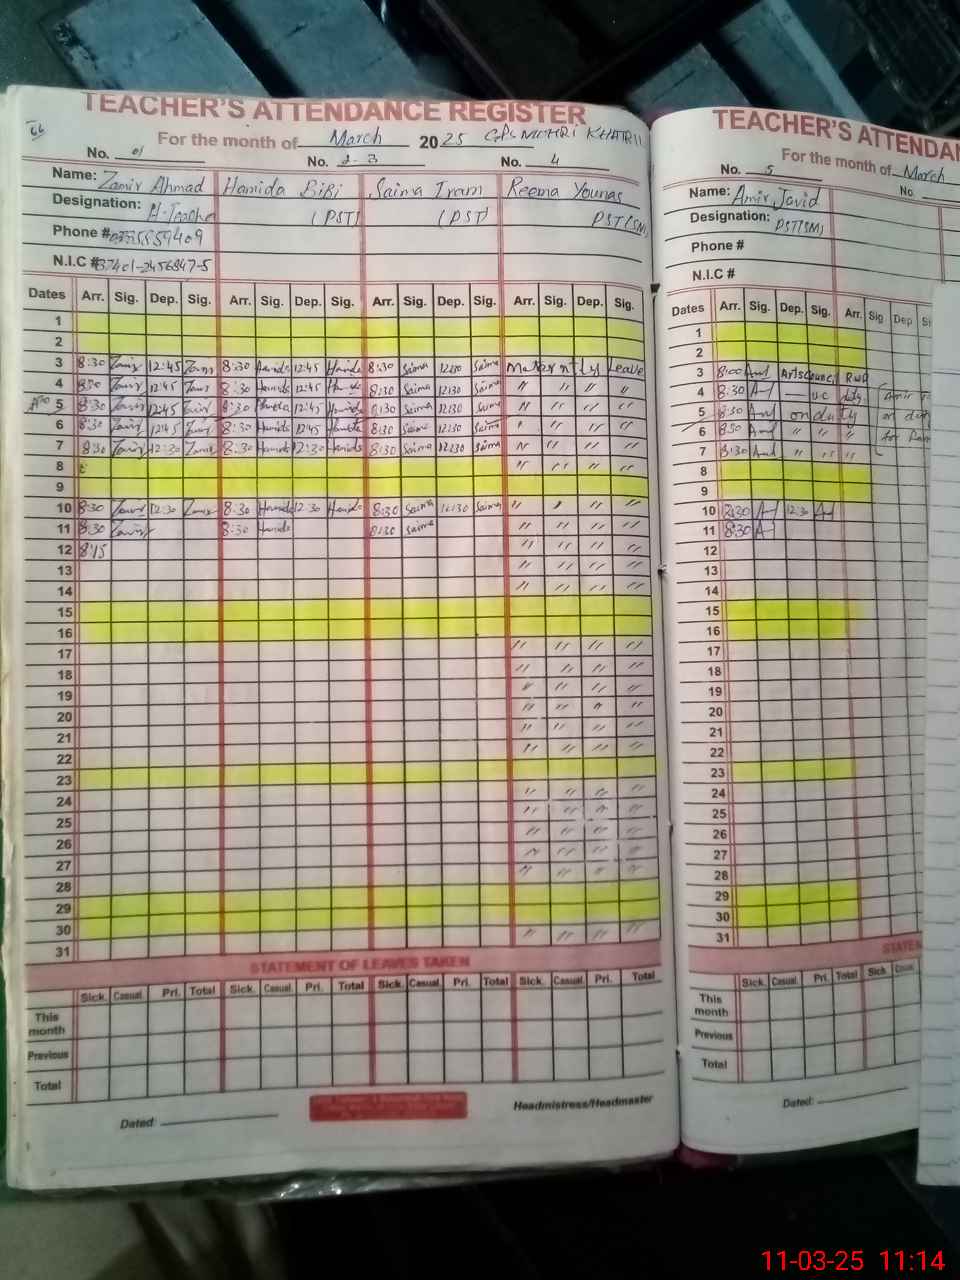 TEACHER'S ATTENDANCE REGISTER
For the month of March 2025 GPS MOHRI KHATRIL
No. 01 No. 2-3 No. 4
Name: Zamir Ahmad Hamida BiBi Saima Iram Reema Younas
Designation: H-Teacher (PST) (PST) PST(SM)
Phone #
N.I.C # 37401-2456847-5
Dates Arr. Sig. Dep. Sig. Arr. Sig. Dep. Sig. Arr. Sig. Dep. Sig. Arr. Sig. Dep. Sig.
1
2
3 8:30 Zamir 12:45 Zamir 8:30 Hamida 12:45 Hamida 8:30 Saima 12:30 Saima Maternity Leave
4 8:30 Zamir 12:45 Zamir 8:30 Hamida 12:45 Hamida 8:30 Saima 12:30 Saima " " " "
5 8:30 Zamir 12:45 Zamir 8:30 Hamida 12:45 Hamida 8:30 Saima 12:30 Saima " " " "
6 8:30 Zamir 12:45 Zamir 8:30 Hamida 12:45 Hamida 8:30 Saima 12:30 Saima " " " "
7 8:30 Zamir 12:30 Zamir 8:30 Hamida 12:30 Hamida 8:30 Saima 12:30 Saima " " " "
8 " " " "
9
10 8:30 Zamir 12:30 Zamir 8:30 Hamida 12:30 Hamida 8:30 Saima 12:30 Saima " " " "
11 8:30 Zamir 8:30 Hamida 8:30 Saima " " " "
12 8:15 " " " "
13 " " " "
14 " " " "
15
16
17 " " " "
18 " " " "
19 " " " "
20 " " " "
21 " " " "
22 " " " "
23
24 " " " "
25 " " " "
26 " " " "
27 " " " "
28 " " " "
29
30
31 " " " "
STATEMENT OF LEAVES TAKEN
Sick. Casual. Pri. Total Sick. Casual. Pri. Total Sick. Casual. Pri. Total Sick. Casual. Pri. Total
This month
Previous
Total
Dated: Headmistress/Headmaster
TEACHER'S ATTENDAN
For the month of March
No. 5 No.
Name: Amir Javid
Designation: PST(SM)
Phone #
N.I.C #
Dates Arr. Sig. Dep. Sig. Arr. Sig Dep
1
2
3 8:00 Arts Council RWP
4 8:30 U.C
5 8:30 on duty
6 8:30 " " "
7 8:30 " " "
8
9
10 8:30 12:30
11 8:30
12
13
14
15
16
17
18
19
20
21
22
23
24
25
26
27
28
29
30
31
STATEM
Sick. Casual. Pri. Total Sick. Casual.
This month
Previous
Total
Dated:
11-03-25 11:14